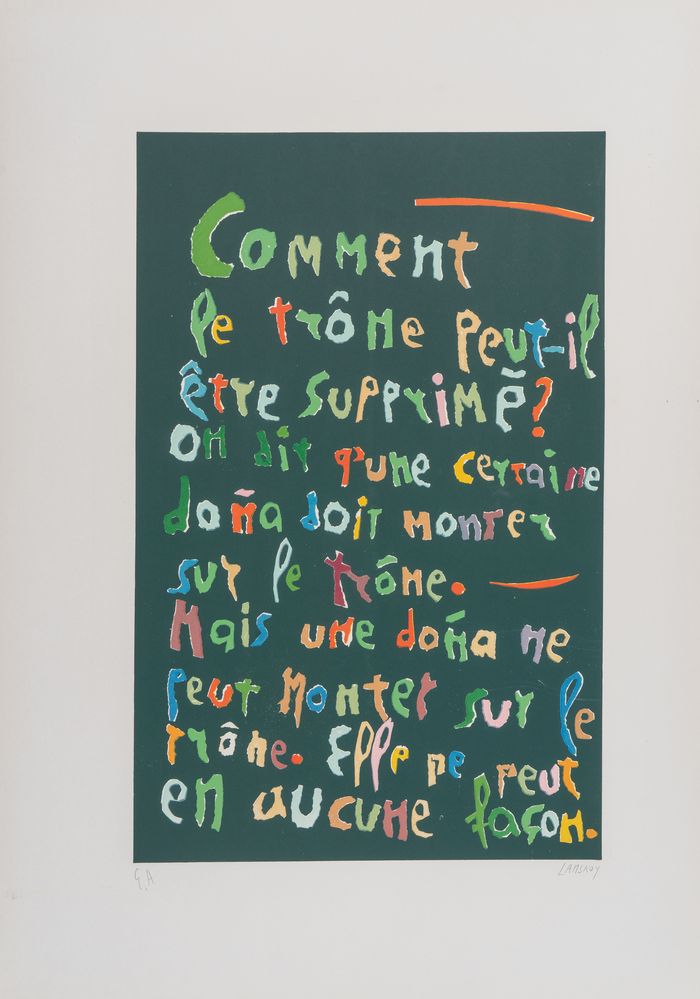 Comment
le trône peut-il
être supprimé?
On dit q'une certaine
doña doit monter
sur le trône. —
Mais une doña ne
peut monter sur le
trône. Elle ne peut
en aucune façon.
E.A LANSKOY